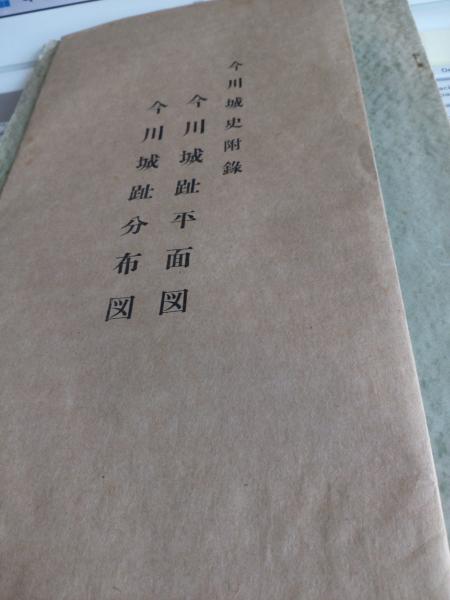 今川城史附錄
今川城趾平面図
今川城趾分布図